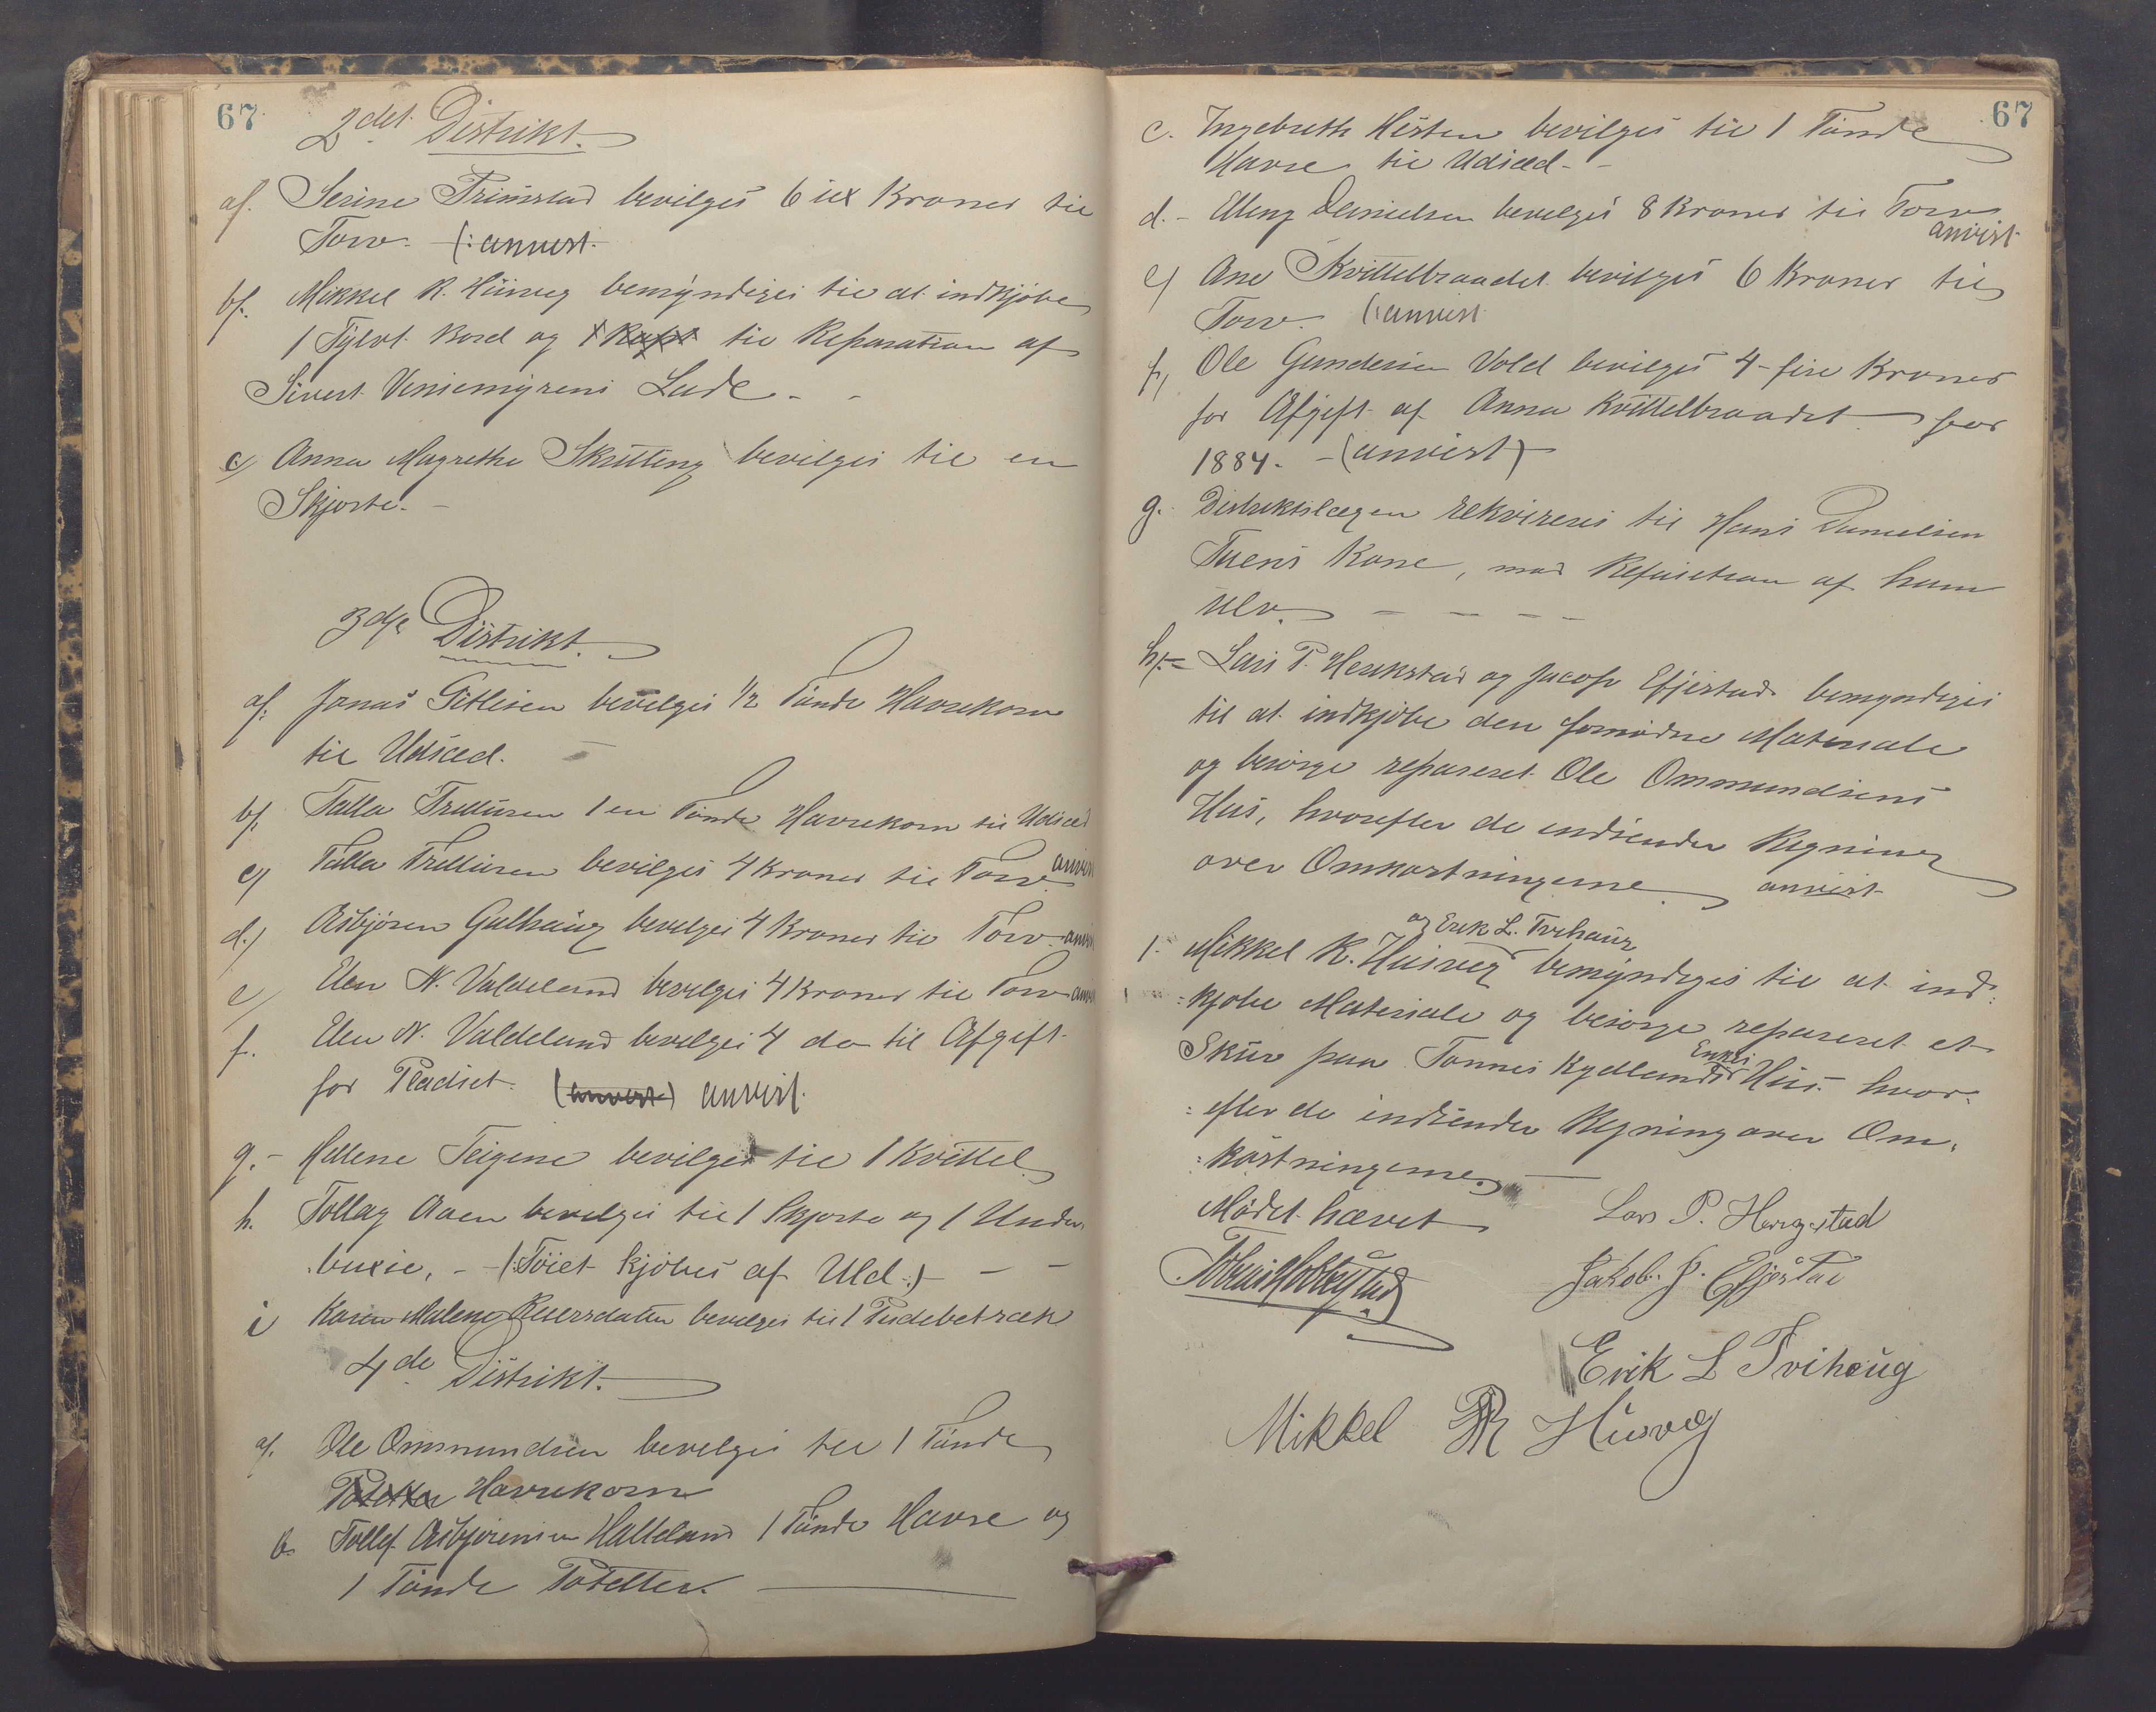 67
2det Distrikt.
a/. Serine Primstad bevilges 6 sex Kroner til
Torv. (: anvist.
b/. Mikkel R. Husveg bemyndiges til at indkjøbe
1 Tylvt Bord og til Reparation af
Sivert Veniemyrens Lade - -
c/ Anna Magrethe Skitting bevilges til en
Skjorte. -
3die Distrikt.
a/: Jonas Gitlesen bevilges 1/2 Tønde Havrekorn
til Udsæd.
b/: Talla Trellusen 1 en Tønde Havrekorn til Udsæd
c/ Talla Trellusen bevilges 4 Kroner til Torv. anvist
d./ Asbjørn Gulhaug bevilges 4 Kroner til Torv. anvist
e/ Elen N. Valdeland bevilges 4 Kroner til Torv anvist
f. Elen N. Valdeland bevilges 4 do til Afgift
for Pladset. (anvist) anvist.
g. - Hellene Teigene bevilges til 1 Kvittel
h. Tollag Aaen bevilges til 1 Skjorte og 1 Under
buxse. - (: Töiet kjöbes af Uld :) - -
i Karen Malene bevilges til 1 Pudebetræk
4de Distrikt.
a/. Ole Ommundsen bevilges til 1 Tønde
Poteter Havrekorn
b. Tollef Asbjørnsen Halleland 1 Tønde Havre og
1 Tønde Poteter.
67
c. Ingebreth Hesten bevilges til 1 Tønde
Havre til Udsæd - -
d. - Elling Danielsen bevilges 8 Kroner til Torv
anvist
e/ Ane Kvittelbraadet bevilges 6 Kroner til
Torv. (: anvist
f/ Ole Gundersen Vold bevilges 4 - fire Kroner
for Afgift af Anna Kvittelbraadet for
1884. - (anvist)
g. Distriktslægen rekvireres til Hans Danielsen
Tuens Kone, mod Refusion af ham
selv. - - - -
h/. - Lars P. Herikstad og Jacob Efjestad bemyndiges
til at indkjöbe den fornødne Materiale
og besørge repareret Ole Ommundsens
Hus, hvorefter de indsender Regning
over Omkostningerne. anvist
og Erik L. Tvihaug
1. Mikkel R. Husveg bemyndiges til at ind-
kjøbe Materiale og besørge repareret et
Skur paa Tønnes Kydlands Enkes Hus. hvor-
efter de indsender Regning over Om-
kostningerne.
Mødet hævet
Lars P. Herigstad
Jakob. J. Efjestad
Erik L Tvihaug
Mikkel R Husveg